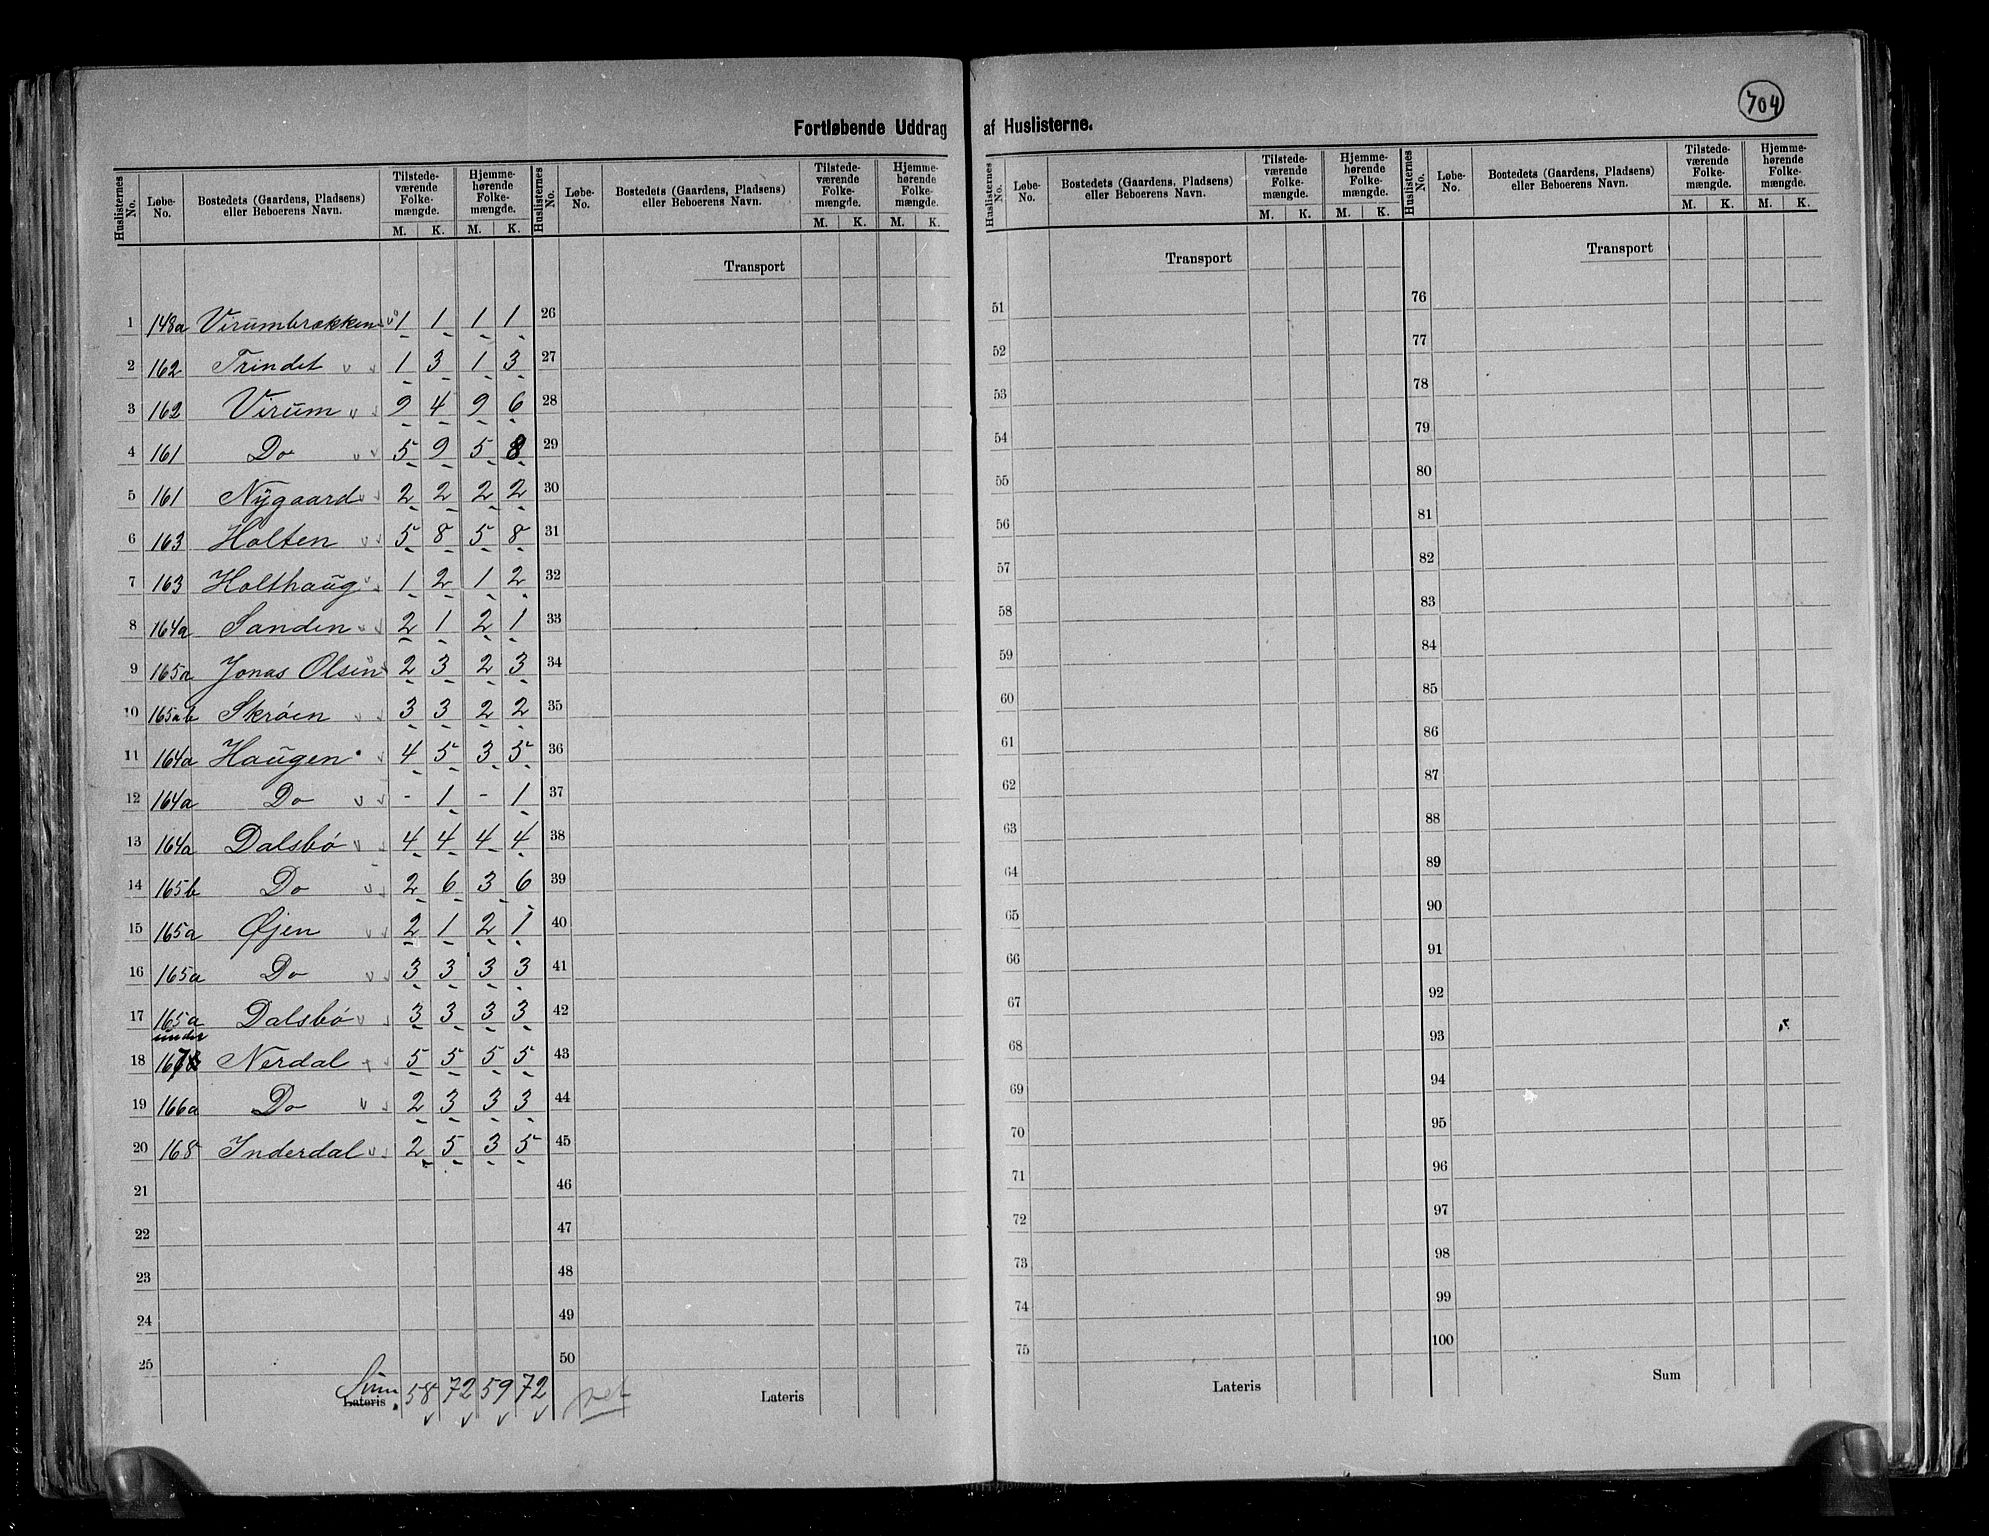 704
Fortløbende Uddrag af Huslisterne.
Huslisternes No. Løbe-No. Bostedets (Gaardens, Pladsens) eller Beboerens Navn. Tilstede-værende Folke-mængde. M. K. Hjemme-hørende Folke-mængde. M. K.
1 148a Virumbrækken 1 1 1 1
2 162 Trindet 1 3 1 3
3 162 Virum 9 4 9 6
4 161 Do 5 9 5 8
5 161 Nygaard 2 2 2 2
6 163 Holten 5 8 5 8
7 163 Holthaug 1 2 1 2
8 164a Sanden 2 1 2 1
9 165a Jonas Olsen 2 3 2 3
10 165ab Skrøen 3 3 2 2
11 164a Haugen 4 5 3 5
12 164a Do - 1 - 1
13 164a Dalsbø 4 4 4 4
14 165b Do 2 6 3 6
15 165a Øjen 2 1 2 1
16 165a Do 3 3 3 3
17 165a Dalsbø 3 3 3 3
under
18 167 Nerdal 5 5 5 5
19 166a Do 2 3 3 3
20 168 Inderdal 2 5 3 5
21
22
23
24
25
Sum
Lateris 58 72 59 72
Huslisternes No. Løbe-No. Bostedets (Gaardens, Pladsens) eller Beboerens Navn. Tilstede-værende Folke-mængde. M. K. Hjemme-hørende Folke-mængde. M. K.
Transport
26
27
28
29
30
31
32
33
34
35
36
37
38
39
40
41
42
43
44
45
46
47
48
49
50
Lateris
Huslisternes No. Løbe-No. Bostedets (Gaardens, Pladsens) eller Beboerens Navn. Tilstede-værende Folke-mængde. M. K. Hjemme-hørende Folke-mængde. M. K.
Transport
51
52
53
54
55
56
57
58
59
60
61
62
63
64
65
66
67
68
69
70
71
72
73
74
75
Lateris
Huslisternes No. Løbe-No. Bostedets (Gaardens, Pladsens) eller Beboerens Navn. Tilstede-værende Folke-mængde. M. K. Hjemme-hørende Folke-mængde. M. K.
Transport
76
77
78
79
80
81
82
83
84
85
86
87
88
89
90
91
92
93
94
95
96
97
98
99
100
Sum